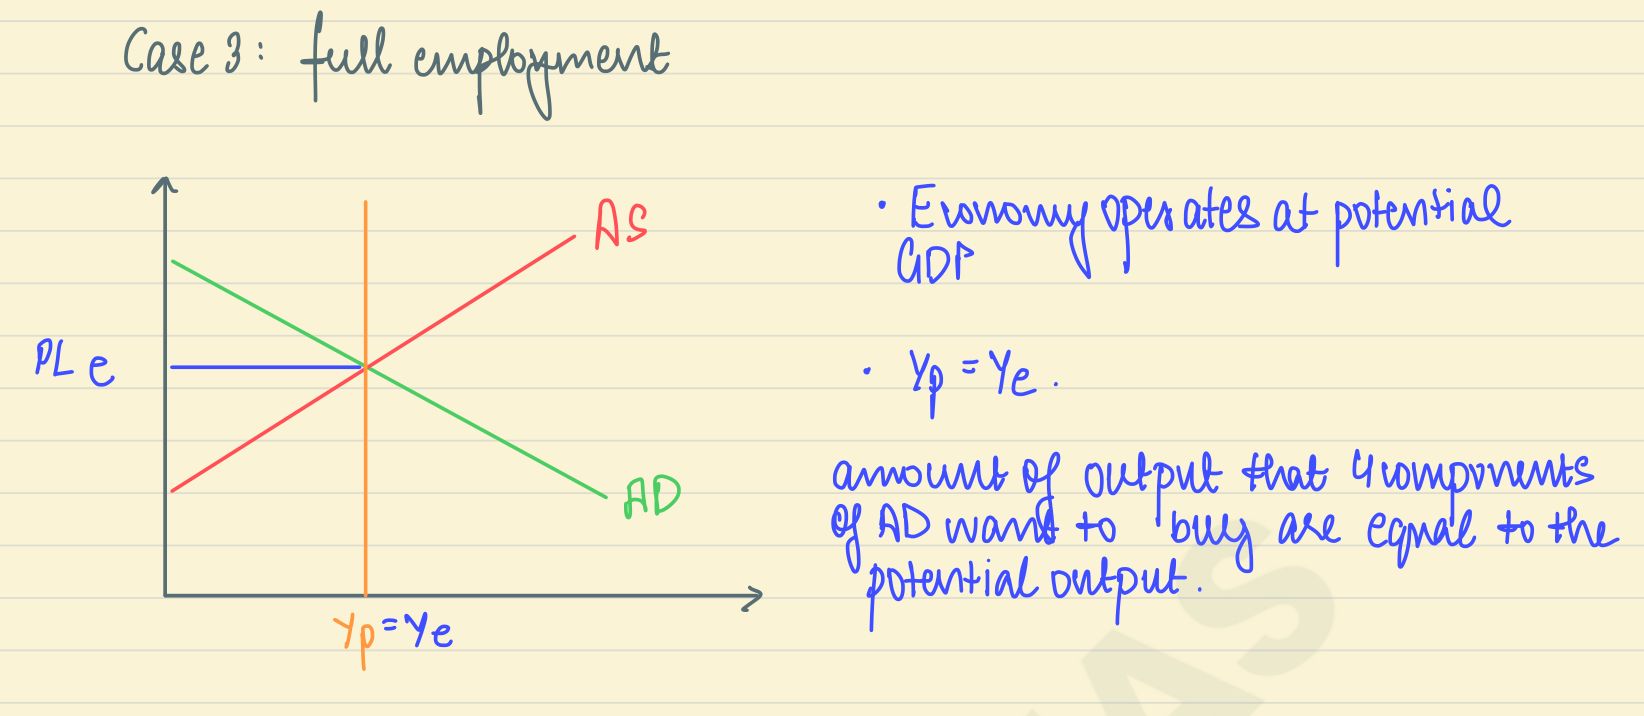 Case 3: full employment
AS
PL e
AD
Yp = Ye
• Economy operates at potential
GDP
• Yp = Ye.
amount of output that 4 components
of AD want to buy are equal to the
potential output.
AS